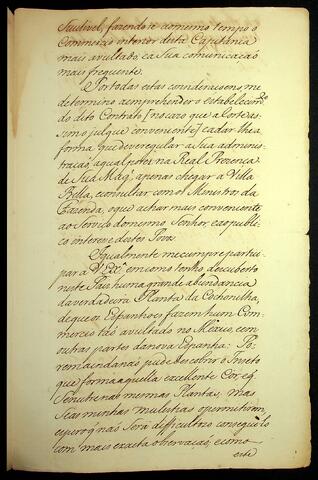 Saudavel, fazendo ao mesmo tempo o
Commercio interior desta Capitania
mais avultado, e a sua comunicação
mais frequente.
Por todas estas consideraçoens, me
determino a emprehender o estabelecim.to
do dito Contrato [no cazo que a Corte as-
sim o julgue conveniente] e a dar lhe a
forma que deve regular a sua adminis-
tração, a qual porei na Real Prezença
de Sua Mag.e apenas chegar a Villa
Bella, e consultar com os Ministros da
Fazenda, o que achar mais conveniente
ao Serviço do mesmo Senhor, e ao publi-
co interesse destes Povos.
Igualmente me cumpre partici-
par a V. Ex.a em como tenho descuberto
neste Pais huma grande abundancia
da verdadeira Planta da Cochonilha,
de que os Espanhoes fazem hum Com-
mercio tão avultado no Mexico, e em
outras partes da nova Espanha: Po-
rem ainda não pude descobrir o Inseto
que forma aquella excellente Cor, e q
se nutre nas mesmas Plantas; mas
se as minhas molestias o permitirem,
espero q não será dificultozo conseguilo
com mais exacta observação, e como
este